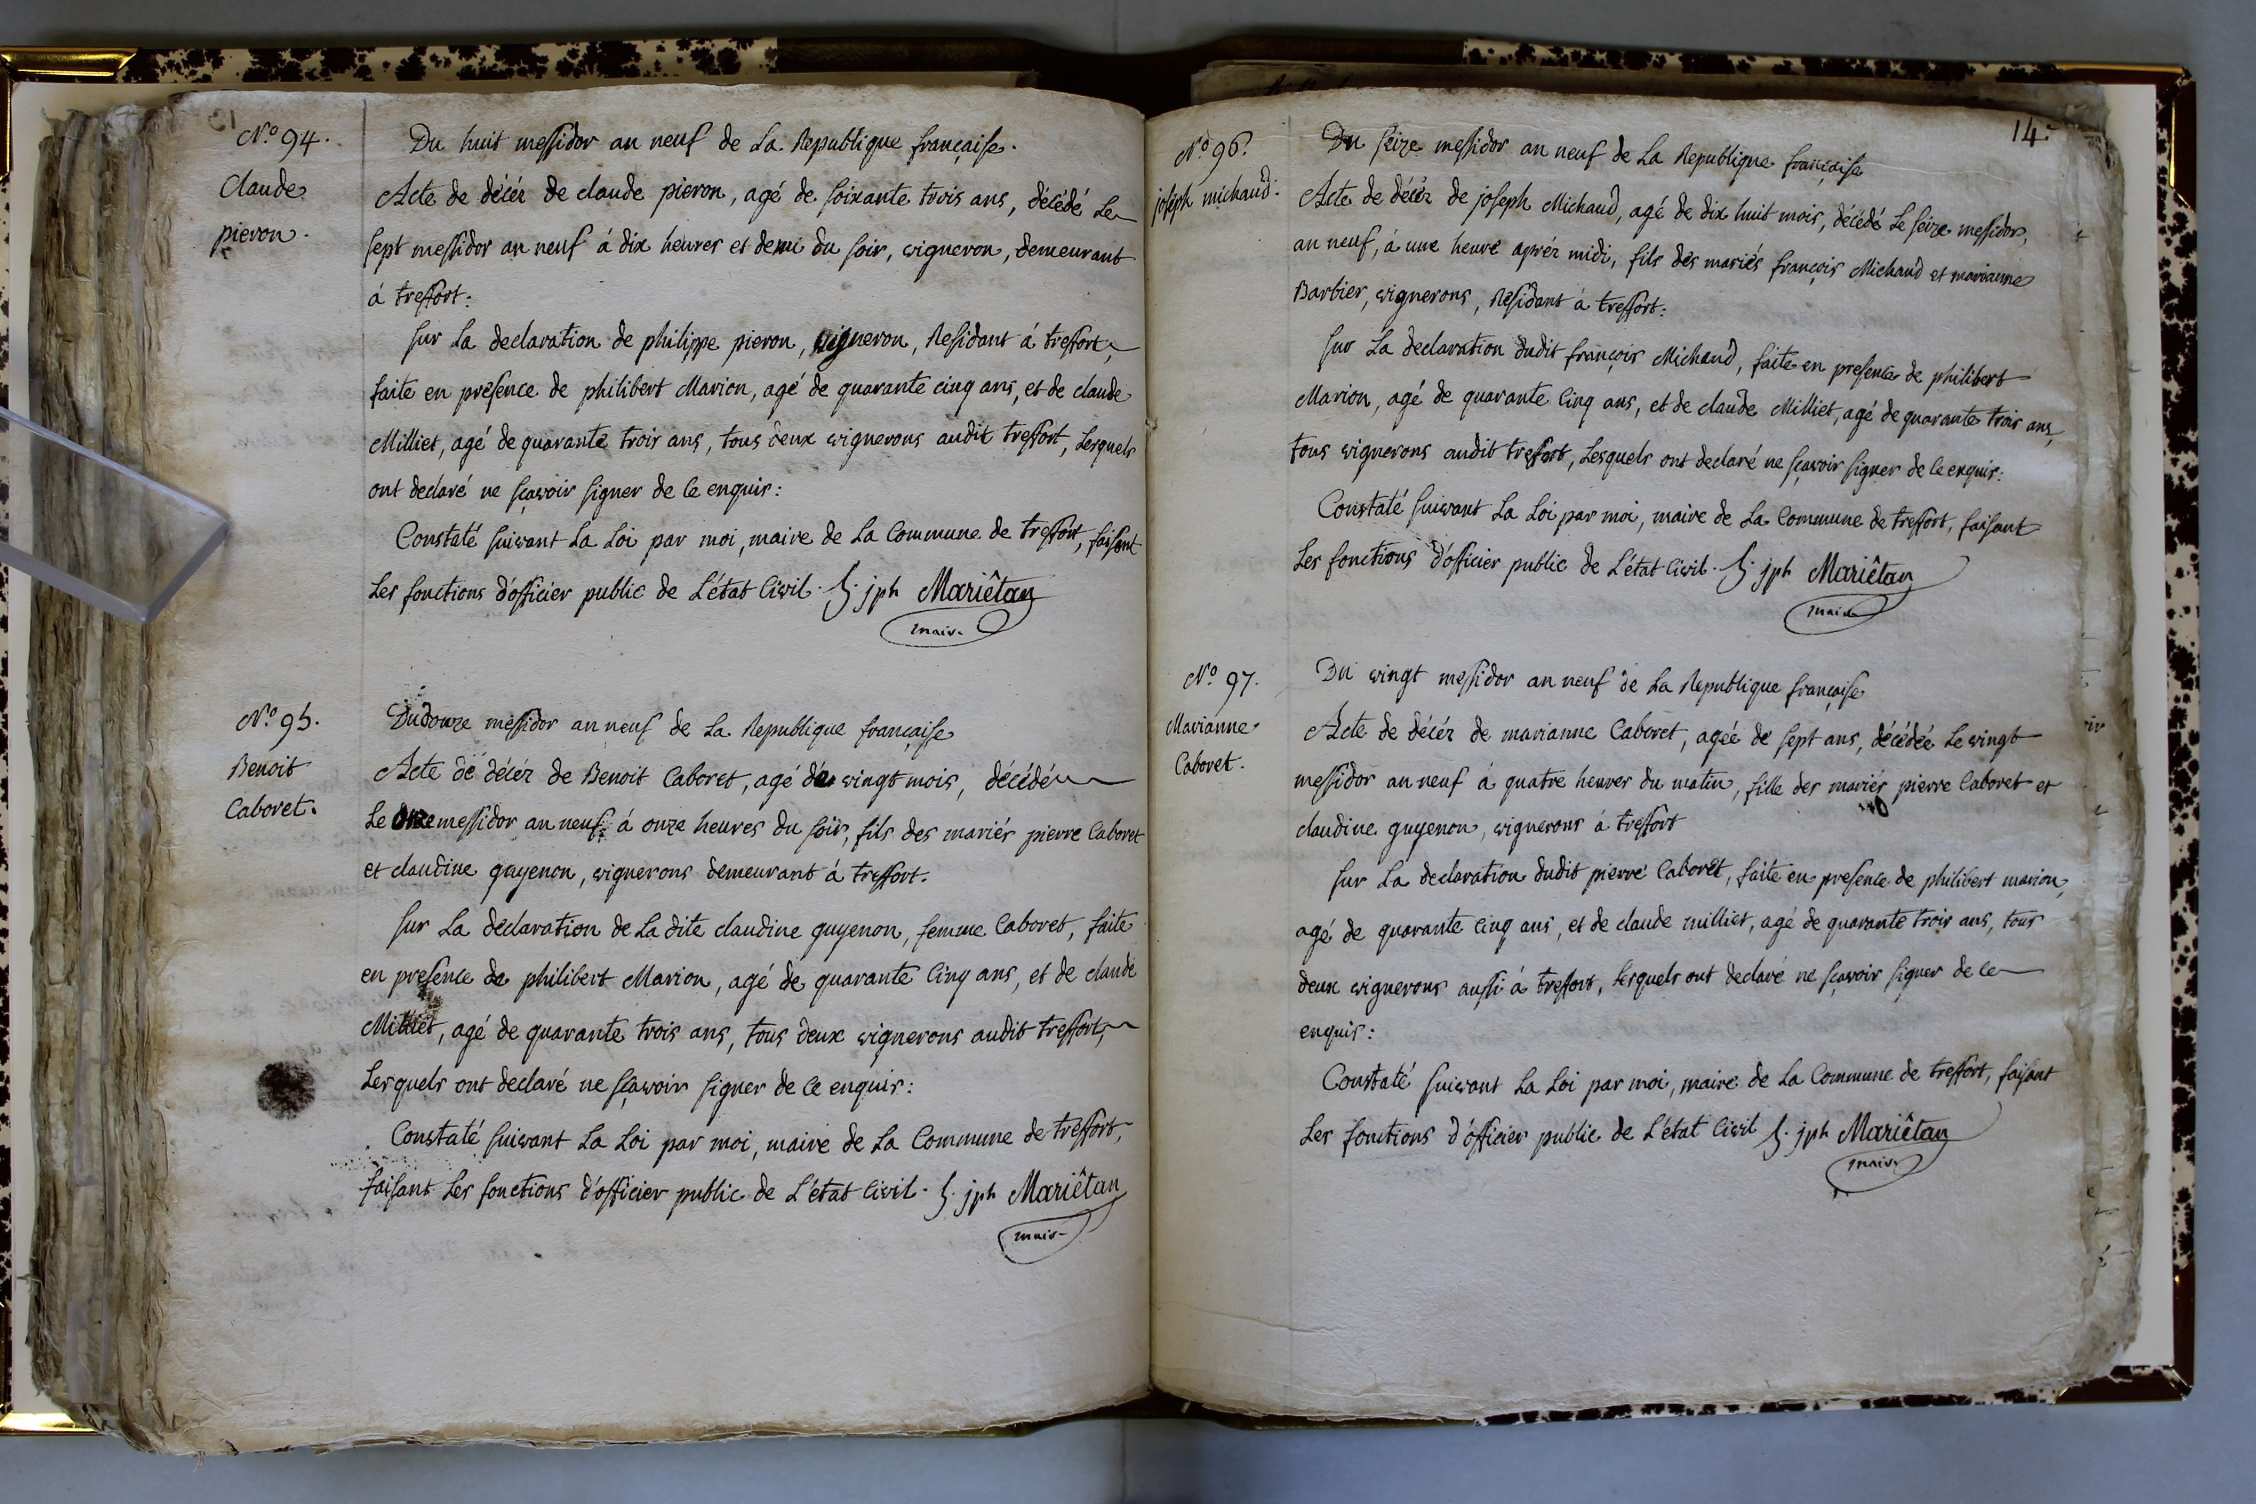 N.o 94.
Claude
pieron.
Du huit messidor an neuf de La Republique française.
Acte de décér de claude pieron, agé de soixante trois ans, décédé Le
sept messidor an neuf á dix heures et demi du soir, vigneron, demeurant
á treffort:
sur La declaration de philippe pieron, vigneron, Residant á treffort,
faite en presence de philibert Marion, agé de quarante cinq ans, et de claude
Milliet, agé de quarante trois ans, tous deux vignerons audit treffort, Lesquels
ont declaré ne sçavoir signer de ce enquis:
Constaté suivant La Loi par moi, maire de La Commune de treffort, faisant
Les fonctions d'officier public de L'état Civil. jph Mariêtan
maire
N.o 95.
Benoit
Caboret.
Du douze messidor an neuf de La Republique française
Acte de décér de Benoit Caboret, agé de vingt mois, décédé
Le onze messidor an neuf á onze heures du soir, fils des mariés pierre Caboret
et claudine guyenon, vignerons demeurant á treffort.
sur La declaration de La dite claudine guyenon, femme Caboret, faite
en presence de philibert Marion, agé de quarante Cinq ans, et de claude
Milliet, agé de quarante trois ans, tous deux vignerons audit treffort,
Lesquels ont declaré ne sçavoir signer de ce enquis:
Constaté suivant La Loi par moi, maire de La Commune de treffort,
faisant Les fonctions d'officier public de L'état Civil. jph Mariêtan
maire
14.
N.o 96.
joseph michaud.
Du seize messidor an neuf de La Republique française
Acte de décér de joseph Michaud, agé de dix huit mois, décédé Le seize messidor,
an neuf, á une heure aprér midi, fils des mariés françois Michaud et marianne
Barbier, vignerons, Residant á treffort:
sur La declaration dudit françois Michaud, faite en presence de philibert
Marion, agé de quarante Cinq ans, et de claude Milliet, agé de quarante trois ans,
tous vignerons audit treffort, Lesquels ont declaré ne sçavoir signer de ce enquis:
Constaté suivant La Loi par moi, maire de La Commune de treffort, faisant
Les fonctions d'officier public de L'état Civil. jph Mariêtan
maire
N.o 97.
Marianne
Caboret.
Du vingt messidor an neuf de La Republique française
Acte de décér de marianne Caboret, agée de sept ans, décédée Le vingt
messidor an neuf á quatre heures du matin, fille des mariés pierre Caboret et
claudine guyenon, vignerons á treffort
sur La declaration dudit pierre Caboret, faite en presence de philibert marion,
agé de quarante Cinq ans, et de claude milliet, agé de quarante trois ans, tous
deux vignerons aussi á treffort, Lesquels ont declaré ne sçavoir signer de ce
enquis:
Constaté suivant La Loi par moi, maire de La Commune de treffort, faisant
Les fonctions d'officier public de L'état Civil jph Mariêtan
maire